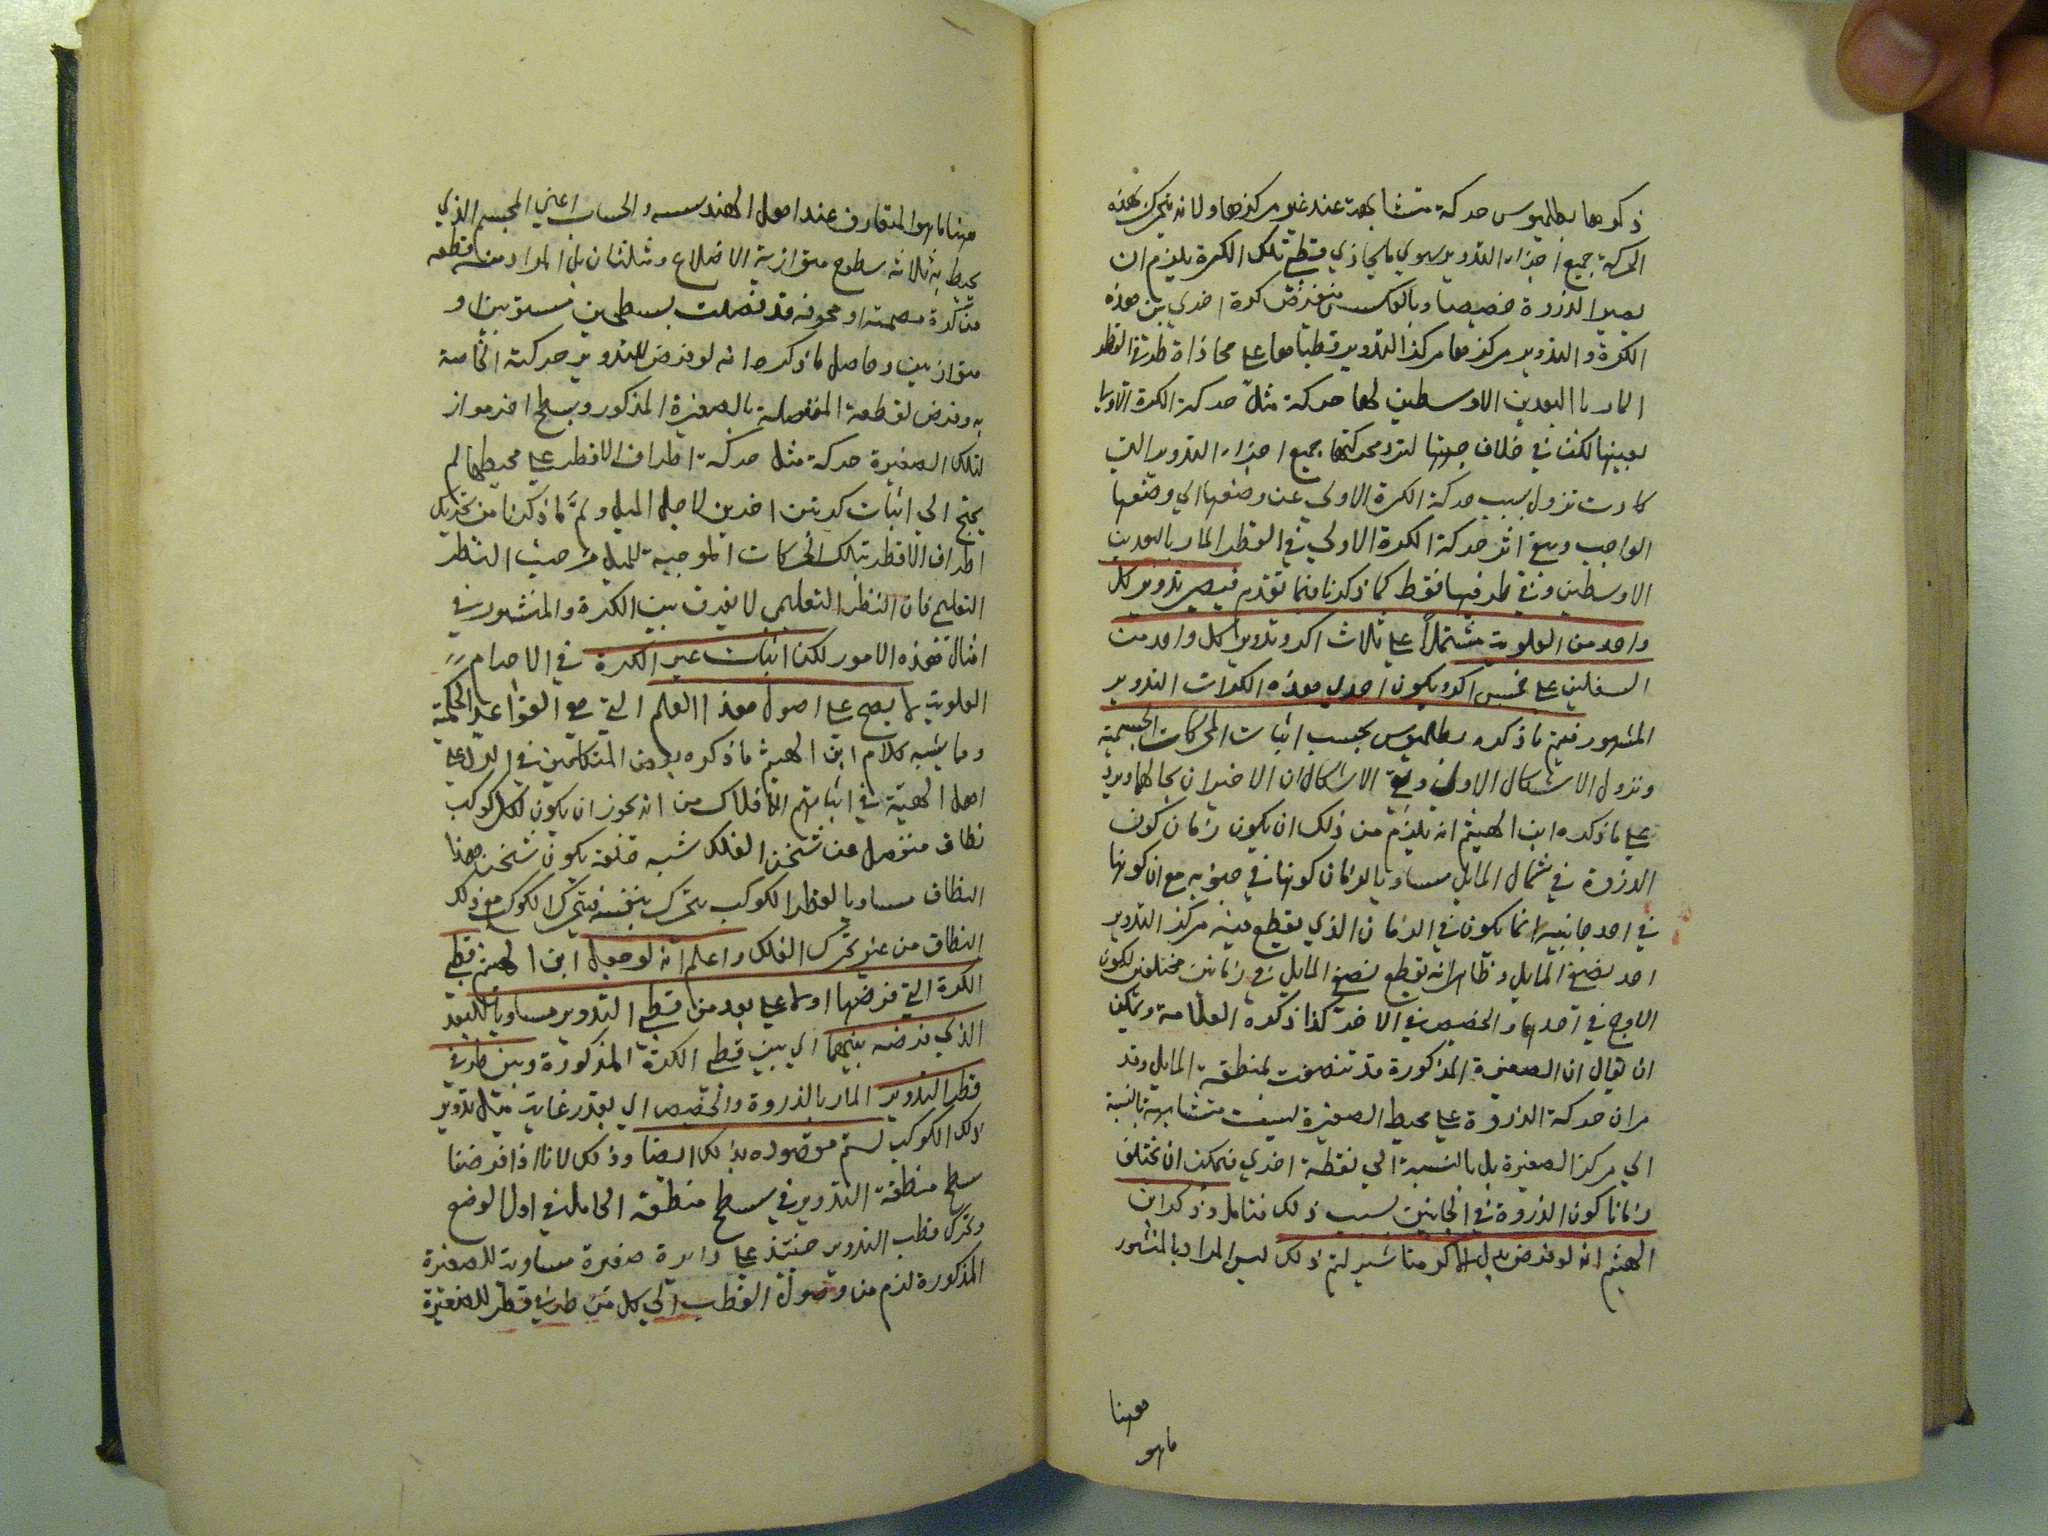 ذكرها بطلميوس حركة متشابهة عند غير مركزها ولانه يتحرك بهذه
الحركة جميع اجزاء التدوير سوى ما يحاذي قطبي تلك الكرة يلزم ان
يصير الذروة حضيضا وبالعكس فنفرض كرة اخرى بين هذه
الكرة والتدوير مركزها مركز التدوير قطباها على محاذاة طرفي القطر
المار بالبعدين الاوسطين لها حركة مثل حركة الكرة الاولى
بعينها لكن في خلاف جهتها لترد بحركتها جميع اجزاء التدوير التي
كادت تزول بسبب حركة الكرة الاولى عن وضعها الى وضعها
الواجب ويبقى اثر حركة الكرة الاولى في القطر المار بالبعدين
الاوسطين وفي طرفيها فقط كما ذكرنا فيما تقدم فيصير تدوير كل
واحد من العلوية مشتملا على ثلاث اكر وتدوير كل واحد من
السفليين على خمس اكر ويكون احدى هذه الكرات التدوير
المشهور فيتم ما ذكره بطلميوس بحسب اثبات الحركات الجسمية
ويزول الاشكال الاول ويبقى الاشكالان الاخيران بحالهما ويرد
على ما ذكره ابن الهيثم انه يلزم من ذلك ان يكون زمان كون
الذروة في شمال المايل مساويا لزمان كونها في جنوبه مع ان كونها
في احد جانبيه انما يكون في الزمان الذي يقطع فيه مركز التدوير
احد نصفي المايل وظاهر انه يقطع نصفي المايل في زمانين مختلفين لكون
الاوج في احدهما والحضيض في الاخر كذا ذكره العلامة ويمكن
ان يقال ان الصغيرة المذكورة قد تنصفت بمنطقة المايل وقد
مر ان حركة الذروة على محيط الصغيرة ليست متشابهة بالنسبة
الى مركز الصغيرة بل بالنسبة الى نقطة اخرى فيمكن ان يختلف
زمانا كون الذروة في الجانبين بسبب ذلك فتامل وذكر ابن
الهيثم انه لو فرض بدل الاكر مناشير لتم ذلك ليس المراد بالمنشور
ههنا
ما هو
ههنا ما هو المتعارف عند اهل الهندسة والحساب اعني المجسم الذي
يحيط به ثلاثة سطوح متوازية الاضلاع ومثلثان بل المراد منه قطعة
من كرة مصمتة او مجوفة قد فصلت بسطحين مستويين او
متوازيين وحاصل ما ذكره انه لو فرض للتدوير حركته الخاصة
به وفرض لقطعة المنفصلة بالصغيرة المذكور وسطح اخر مواز
لتلك الصغيرة حركة مثل حركة اطراف الاقطار على محيطها لم
يحتج الى اثبات كرتين اخريين لاجل الميل ولتم ما ذكرنا من تحريك
اطراف الاقطار بتلك الحركات الموجبة للميل من حيث النظر
التعليمي فان النظر التعليمي لا يفرق بين الكرة والمنشور في
امثال هذه الامور لكن اثبات غير الكرة في الاجرام
العلوية لا يصح على اصول هذا العلم التي هي القواعد الحكمية
ومما يشبه كلام ابن الهيثم ما ذكره بعض المتكلمين في الرد على
اهل الهيئة في اثباتهم الافلاك من انه يجوز ان يكون لكل كوكب
نطاق منفصل عن ثخن الفلك شبه حلقة يكون ثخن هذا
النطاق مساويا لقطر الكوكب يتحرك بنفسه فيتحرك الكوكب مع ذلك
النطاق من غير تحرك الفلك واعلم انه لو جعل ابن الهيثم قطبي
الكرة التي فرضها اولا على بعد من قطبي التدوير مساويا للبعد
الذي فرضه بينهما اي بين قطبي الكرة المذكورة وبين طرفي
قطر التدوير المار بالذروة والحضيض اي بقدر غاية ميل تدوير
ذلك الكوكب لتم مقصوده بذلك ايضا وذلك لانا اذا فرضنا
سطح منطقة التدوير في سطح منطقة الحامل في اول الوضع
وتحرك قطب التدوير حينئذ على دائرة صغيرة مساوية للصغيرة
المذكورة لزم من وصول القطب الى كل من طرفي قطر للصغيرة